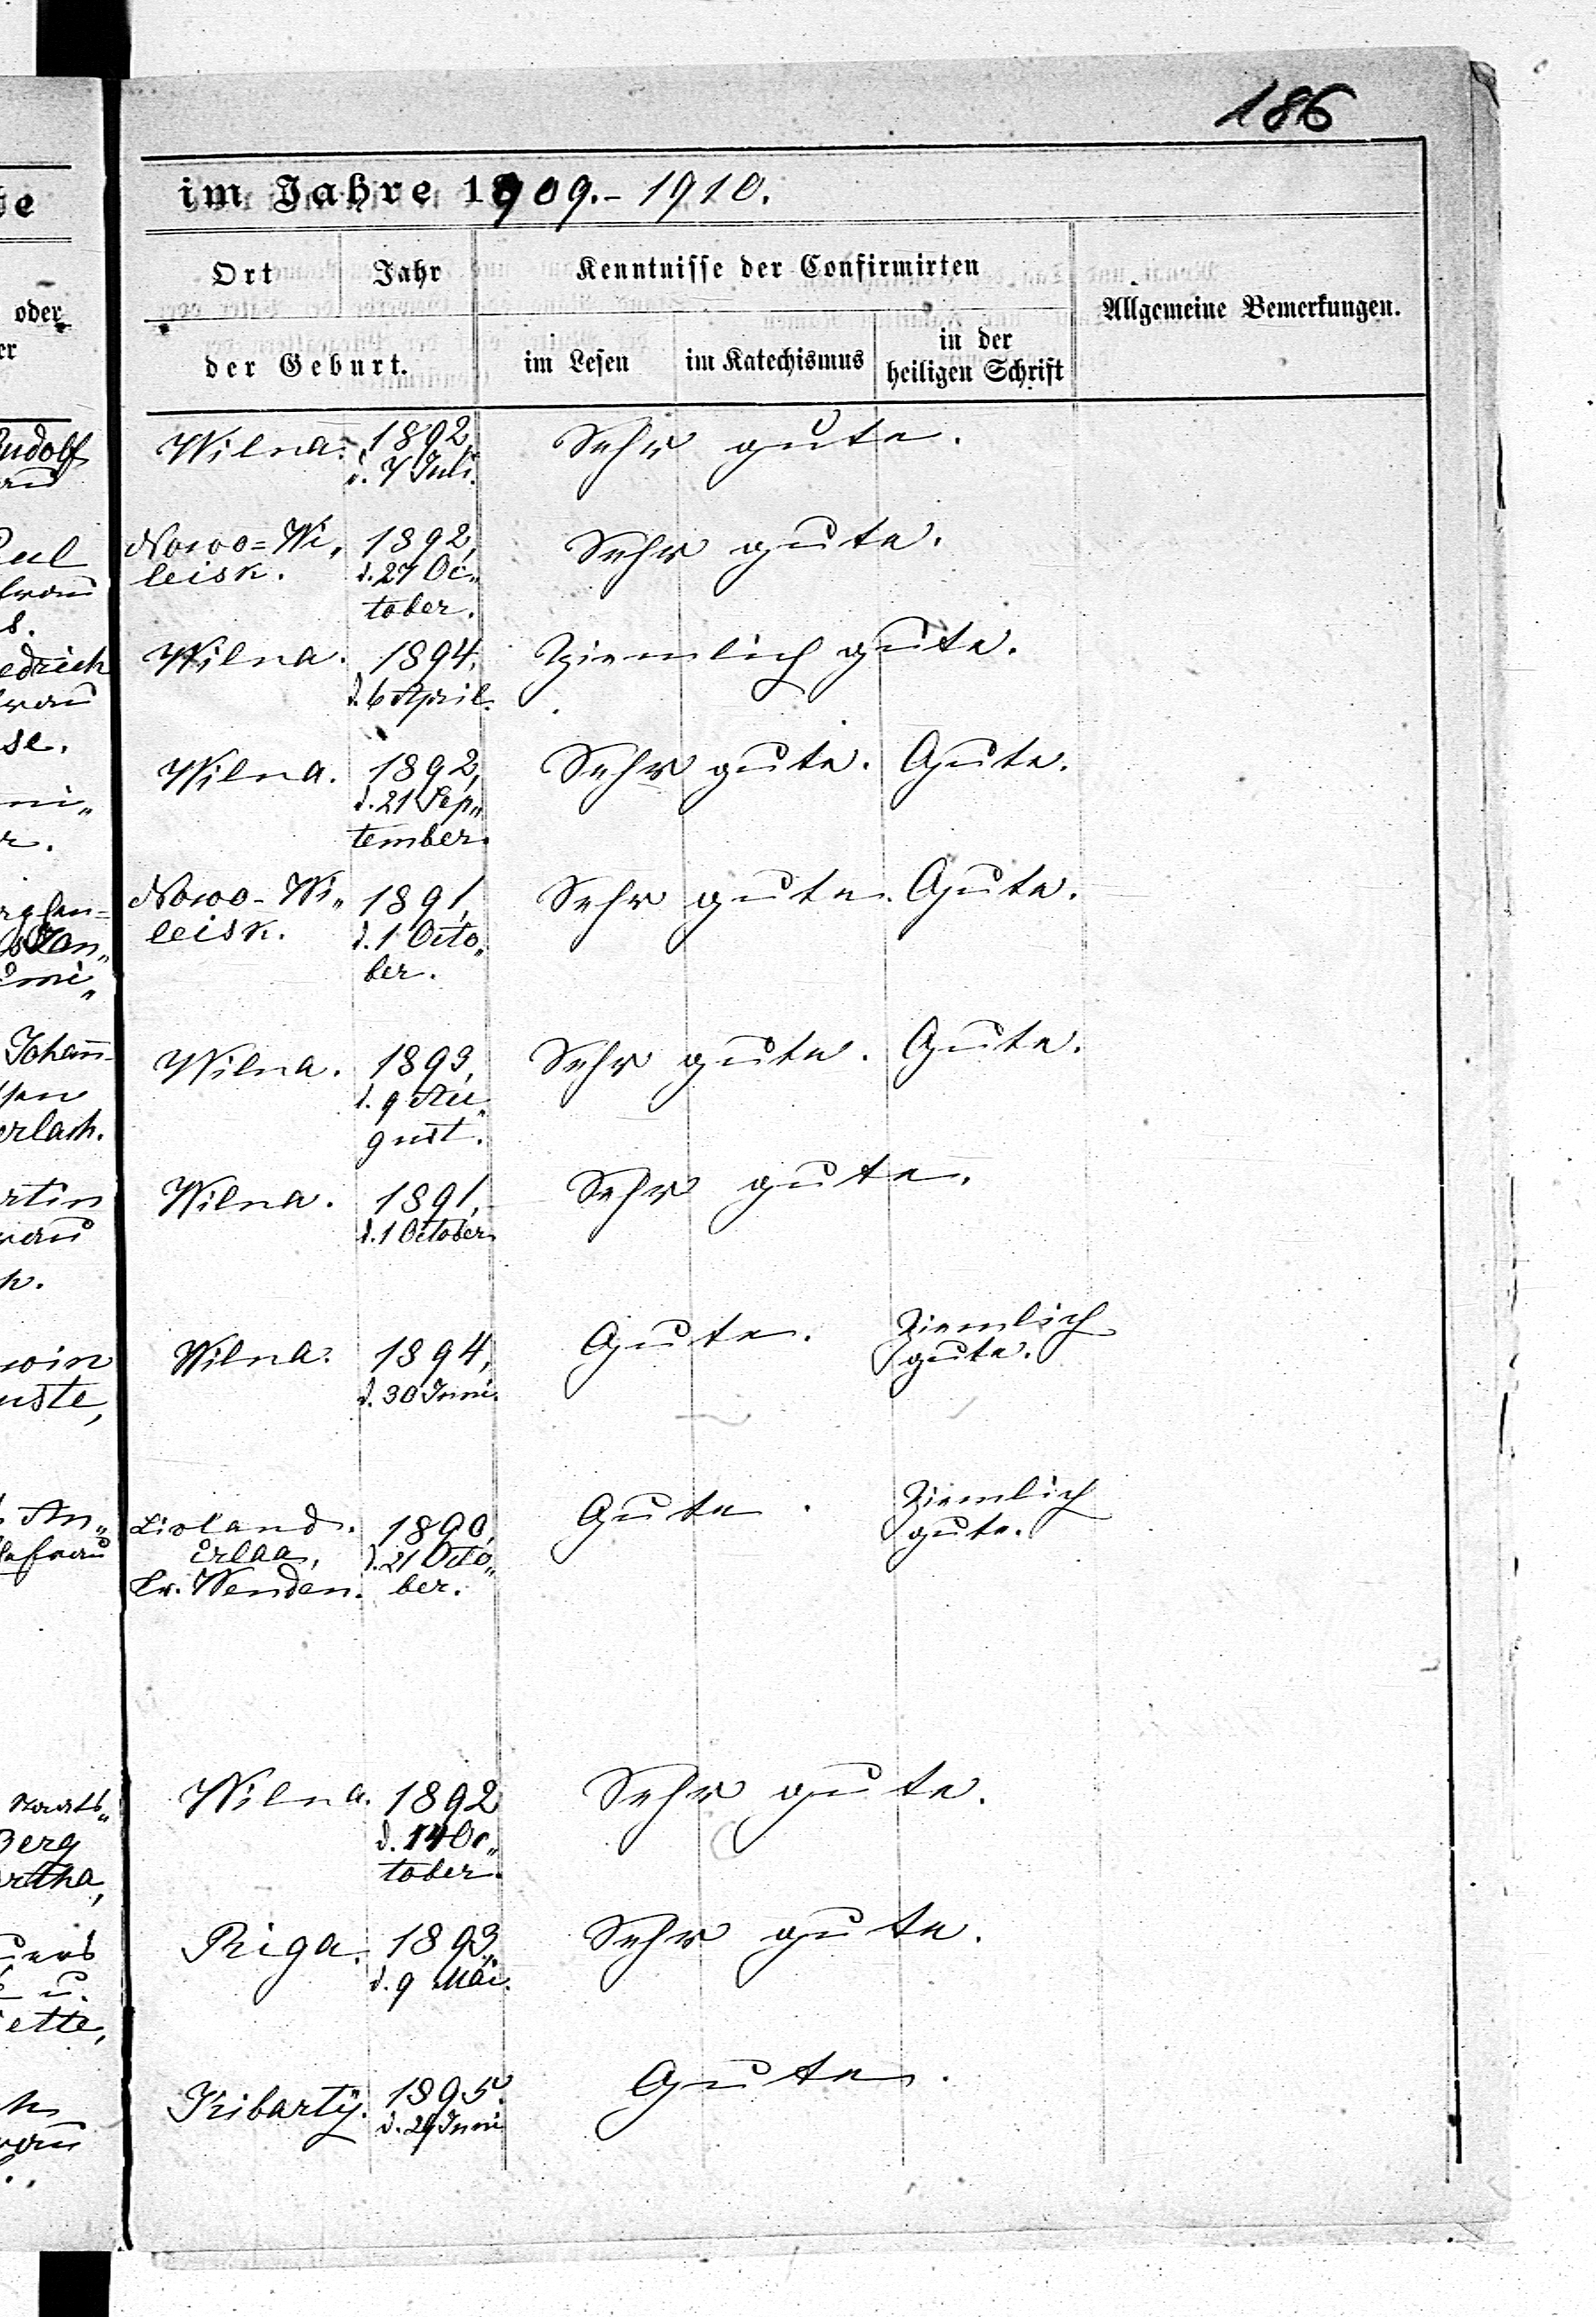 186
im Jahre 1909.- 1910.
Ort Jahr Kenntnisse der Confirmirten Allgemeine Bemerkungen.
der Geburt. im Lesen im Katechismus in der
heiligen Schrift
oder
Wilna. 1892, Sehr gute.
d. 7 Juli.
Nowo=Wi„ 1892, Sehr gute.
leisk. d. 27 Oc„
tober.
Wilna. 1894, Ziemlich gute.
d. 6 April.
Wilna. 1892, Sehr gute. Gute.
d. 21 Sep„
tember.
Nowo-Wi„ 1891, Sehr gute. Gute.
leisk. d. 1 Octo„
ber.
Wilna. 1893, Sehr gute. Gute.
d. 9 Au„
gust.
Wilna. 1891, Sehr gute.
d. 1 October.
Wilna. 1894, Gute. Ziemlich
d. 30 Juni. gute.
Livland. 1890, Gute. Ziemlich
Erlaa, d. 21 Octo„ gute.
Kr. Wenden. ber.
Wilna. 1892 Sehr gute.
d. 14 Oc„
tober.
Riga. 1893, Sehr gute.
d. 9 Mai.
Kibarty. 1895. Gute.
d. 24 Juni